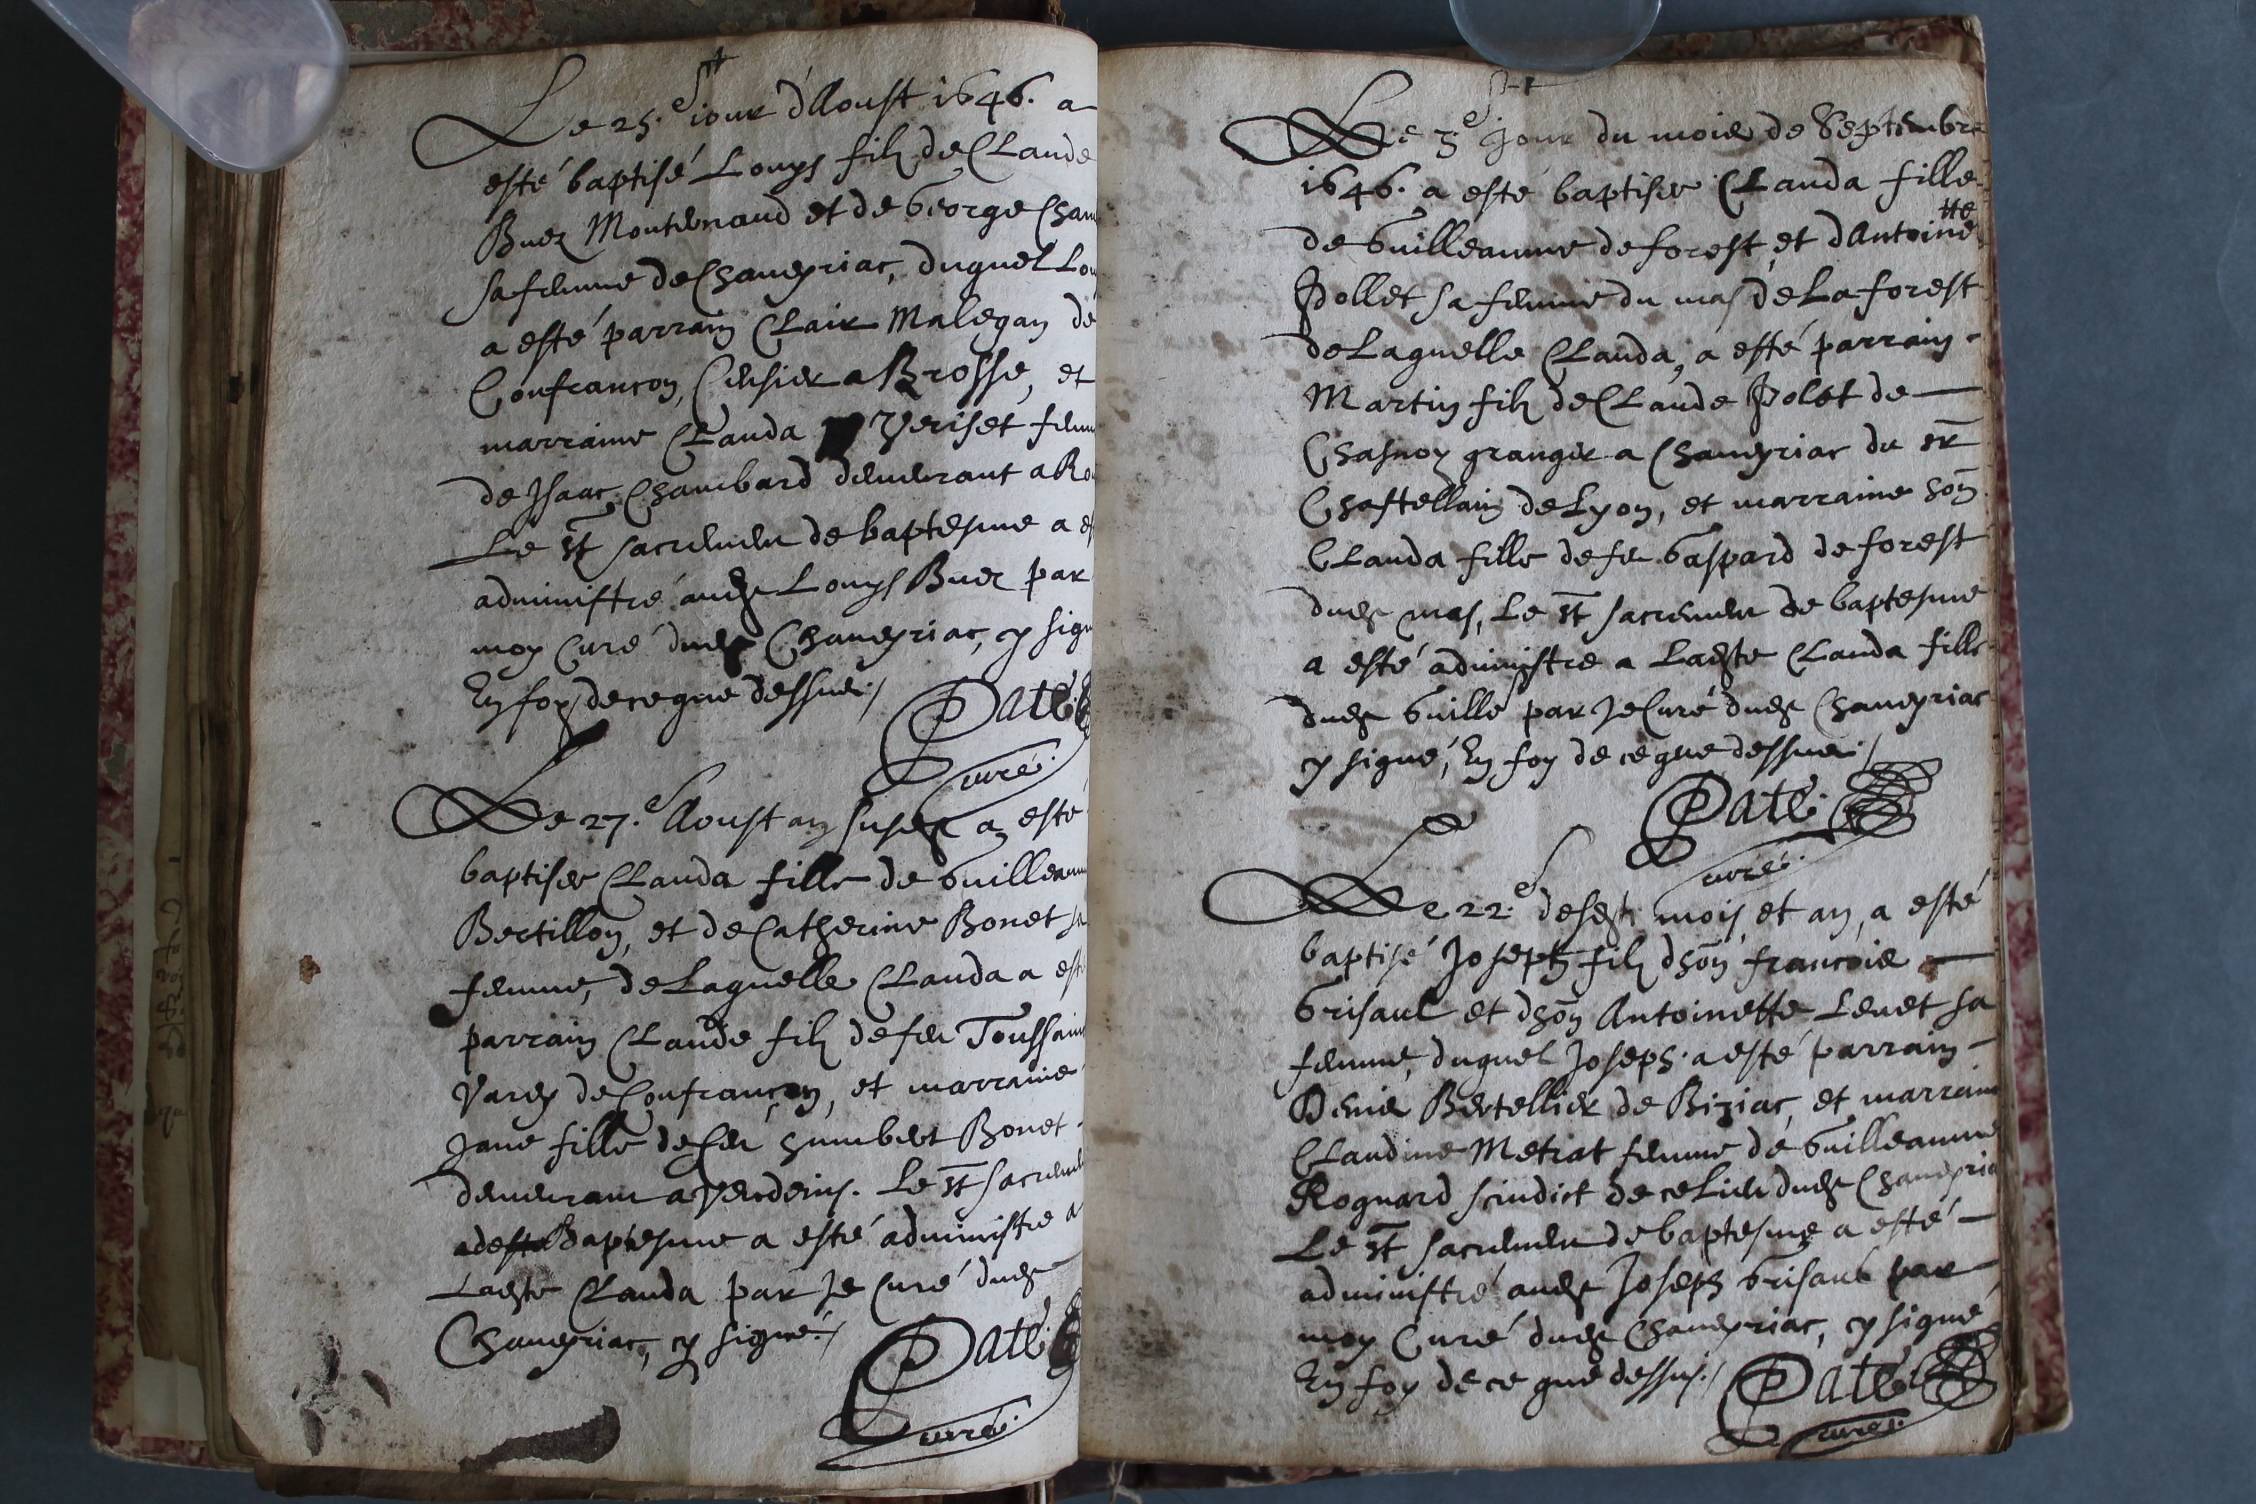 Le 25.e iour d'Aoust 1646. a
esté baptisé Louys filz de Claude
Buez Monternaud et de George Cham
sa femme de Chaveyriac, duquel Lou
a esté parrain Clair Malegan de
Confrancon, Censier a Brosse, et
marraine Clauda Veriset fem
de Isaac Chambard demeurant a Ro
Le st sacrement de baptesme a es
administré audt Louys Buez par
moy Curé dudt Chaveyriac, cy sign
En foy de ce que dessus./
Paté
curé.
Le 27.e Aoust an susdt a esté
baptisee Clauda fille de Guilleaum
Bertillon, et de Catherine Bonet sa
femme, de Laquelle Clauda a est
parrain Claude filz de feu Toussain
Varey de Confrançon, et marraine
Jane fille de feu humbert Bonet
demeurant a Verdeins. Le st sacrem
Baptesme a esté administre a
Ladte Clauda par Je Curé dudt
Chaveyriac, cy signé./
Paté
curé.
Le 3e Jour du mois de Septembre
1646. a esté baptisee Clauda fille
de Guilleaume deforest, et d'Antoinette
Pollet sa femme du mas de La forest
de Laquelle Clauda, a esté parrain
Martin filz de Claude Polet de
Chasnoy granger a Chaveyriac du sr
Chastellain de Lyon, et marraine hon
Clauda fille de fe Gaspard deforest
dudt mas, Le st sacrement de baptesme
a esté administre a Ladte Clauda fille
dudt Guille par Je Curé dudt Chaveyriac
cy signé, En foy de ce que dessus./
Paté
curé.
Le 22.e desdt mois et an, a esté
baptisé Joseph filz d'hon francois
Grisaul et d'hon Antoinette Levet sa
femme, duquel Joseph a esté parrain
Denis Bertellier de Biziac, et marraine
Claudine Metrat femme de Guilleaume
Rognard scindict de ce Lieu dudt Chaveyria
Le st sacrement de baptesme a esté
administré audt Joseph Grisaul par
moy Curé dudt Chaveyriac, cy signé
En foy de ce que dessus./
Paté
curé.